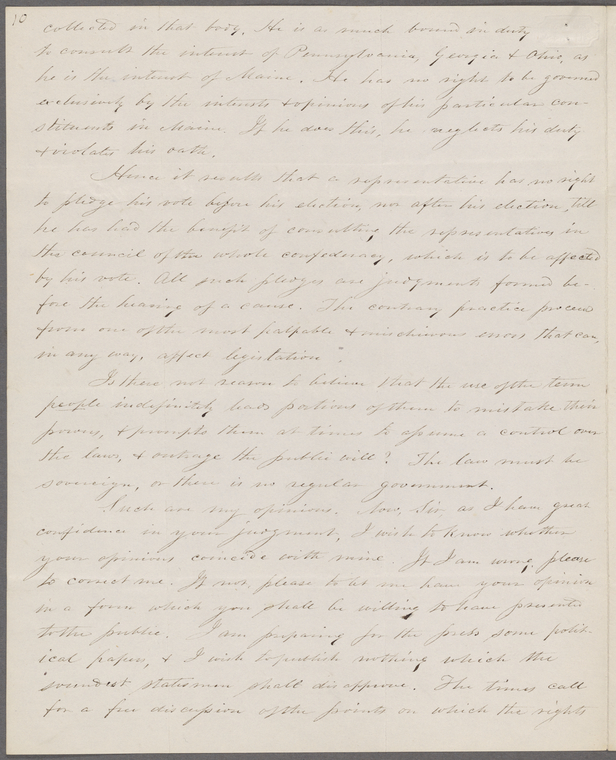 10
collected in that body. He is as much bound in duty
to consult the interest of Pennsylvania, Georgia & Ohio, as
he is the interest of Maine. He has no right to be governed
exclusively by the interests & opinions of his particular con-
stituents in Maine. If he does this, he neglects his duty
& violates his oath.
Hence it results that a representative has no right
to pledge his vote before his election, nor after his election, till
he has had the benefit of consulting the representatives in
the council of the whole confederacy, which is to be affected
by his vote. All such pledges are judgments formed be-
fore the hearing of a cause. The contrary practice proceeds
from one of the most palpable & mischievous errors that can,
in any way, affect legislation".
Is there not reason to believe that the use of the term
people indefinitely leads portions of them to mistake their
powers, & prompts them at times to assume a control over
the laws, & outrage the public will? The law must be
sovereign, or there is no regular government.
Such are my opinions. Now, Sir, as I have great
confidence in your judgment, I wish to know whether
your opinions coincide with mine. If I am wrong, please
to correct me. If not, please to let me have your opinion
in a form which you shall be willing to have presented
to the public. I am preparing for the press some polit-
ical papers, & I wish to publish nothing which the
soundest statesmen shall disapprove. The times call
for a free discussion of the points on which the rights